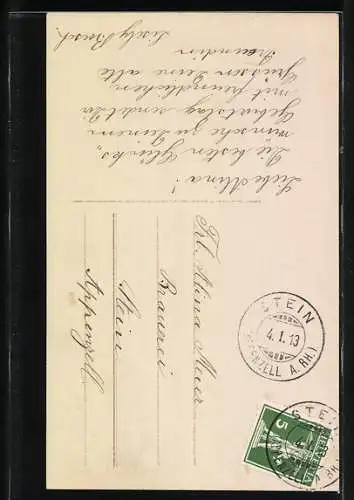 Liebe Mina!
Die besten Glücks-
wünsche zu Deinem
Geburtstag sendet Dir
mit freundlichen
Grüssen Deine alte
Freundin
Lisely Boesch.
Frl. Mina Meier
Brauerei
Stein
Appenzell
STEIN
4.1.13
(APPENZELL A. RH.)
STEIN
5